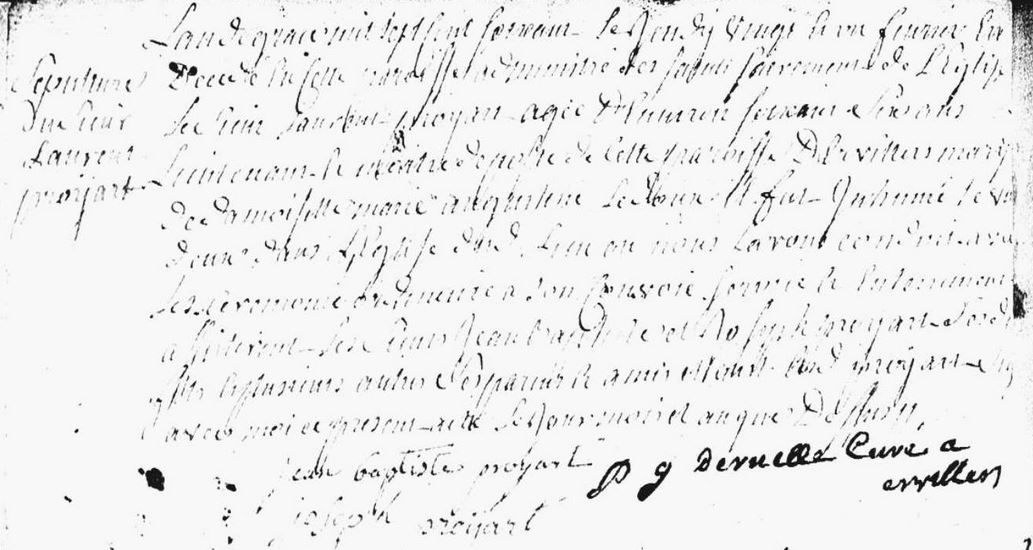 Sepulture
du sieur
Laurent
proyart
Lan de grace mil sept cent soixante le Jeudy vingt et un fevrier Est
Decedé en cette paroisse administré des saints sacrements de L'Eglise
Le sieur Laurent proyart agée D'Environ soixante et six ans
Lieutenant et maitre de poste de cette paroisse D'Ervillers mary
de damoiselle marie augustine Il fut Inhumé le
deux dans L'Eglise dud lieu ou nous Lavons conduit avec
Les ceremonies ordinaires a son Convoie service et Enterrement
assisterent les sieurs Jean baptiste et Joseph proyart
fils et plusieurs autres Ses parents et amis proyart
avec moi ce present acte les Jour mois et an que Dessus
jean baptiste proyart
P g Deruelle Curé a
ervillers
joseph proyart